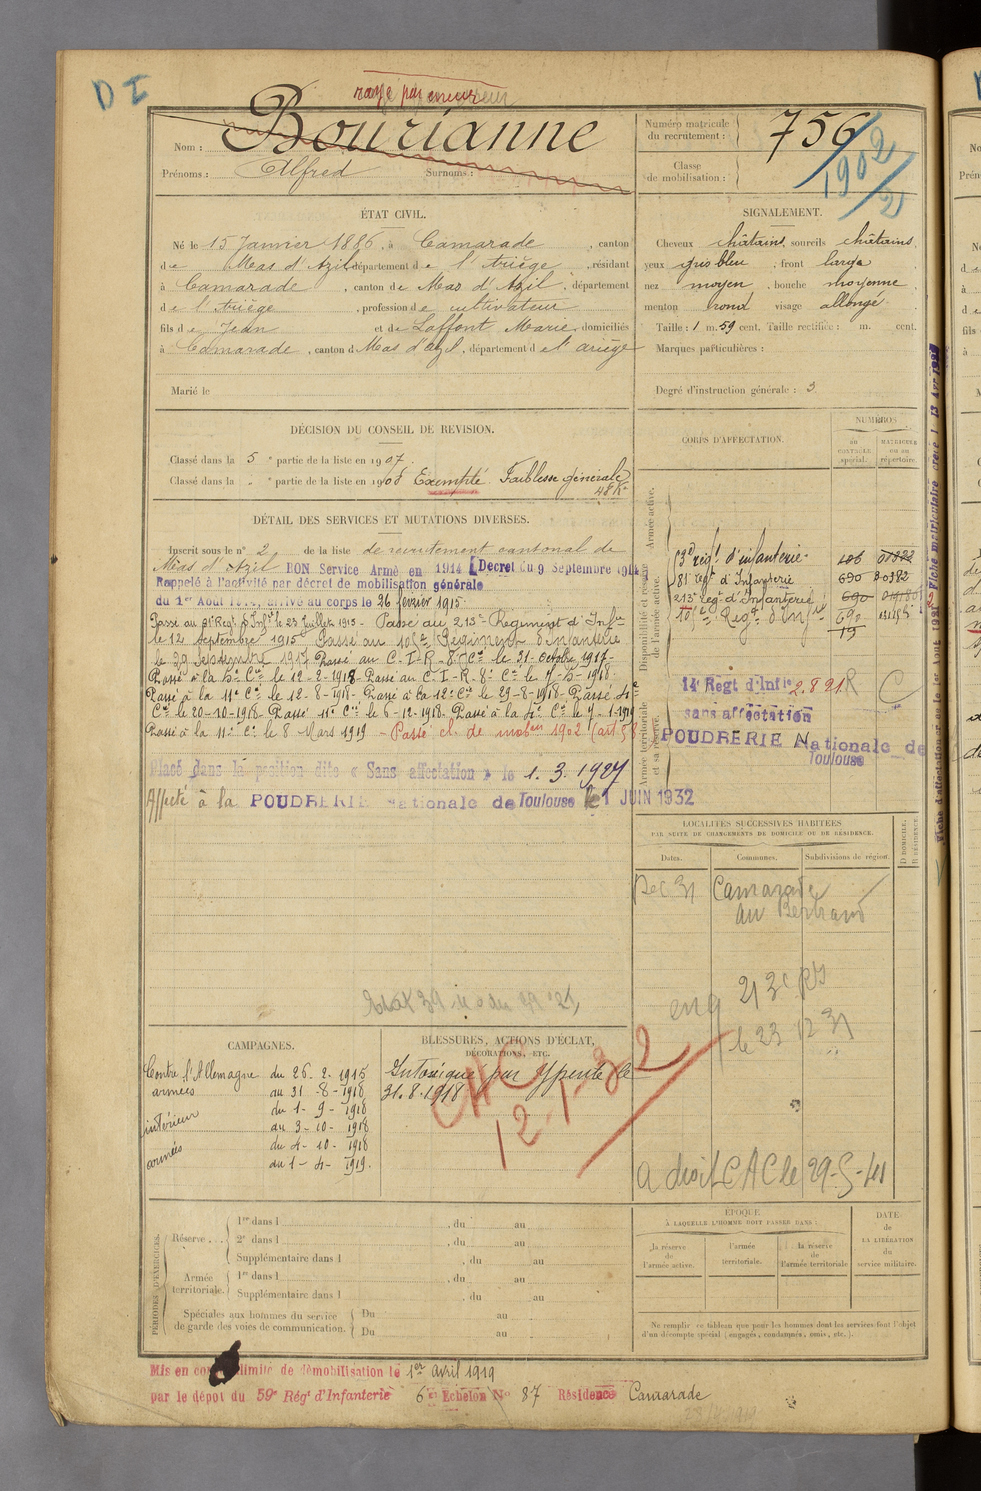 D I
rayé par erreur
Nom : Bourianne
Prénoms : Alfred Surnoms :
Numéro matricule
du recrutement : 756
Classe
de mobilisation : 1902/2
ÉTAT CIVIL.
Né le 15 Janvier 1886, à Camarade, canton
de Mas d'Azil département de l'Ariège, résidant
à Camarade, canton de Mas d'Azil, département
de l'Ariège, profession de cultivateur
fils de Jean et de Laffont Marie, domiciliés
à Camarade, canton d Mas d'Azil, département de l'ariège
Marié le
SIGNALEMENT.
Cheveux châtains, sourcils châtains,
yeux gris bleu, front large
nez moyen, bouche moyenne,
menton rond visage allongé.
Taille : 1 m. 59 cent. Taille rectifiée : m. cent.
Marques particulières :
Degré d'instruction générale : 3
DÉCISION DU CONSEIL DE REVISION.
Classé dans la 5 e partie de la liste en 1907.
Classé dans la " e partie de la liste en 1908 Exempté. Faiblesse générale
48 K
DÉTAIL DES SERVICES ET MUTATIONS DIVERSES.
Inscrit sous le n° 2 de la liste de recrutement cantonal de
Mas d'Azil BON Service Armé en 1914 [Decret du 9 Septembre 1914
Rappelé à l'activité par décret de mobilisation générale
du 1er Août 1914, arrivé au corps le 26 février 1915.
Passé au 81e Régt d'Infie le 23 Juillet 1915 - Passé au 213e Régiment d'Infie
le 12 Septembre 1915 Passé au 10e Régiment d'Infanterie
le 20 Septembre 1917 Passé au C-I-R-8e Cie le 21-octobre 1917-
Passé à la 5e Cie le 12-2-1918- Passé au C-I-R-8e Cie le 7-5-1918.
Passé à la 11e Cie le 12-8-1918- Passé à la 12e Cie le 29-8-1918- Passé 4e
Cie le 20-10-1918- Passé 11e Cie le 6-12-1918- Passé à la 4e Cie le 7-1-1919
Passé à la 11e Cie le 8 Mars 1919 - Passé cl. de mobon 1902 (art 58
Placé dans la position dite « Sans affectation » le 1.3.1927
Affecté à la POUDRERIE Nationale de Toulouse le 1 JUIN 1932
CORPS D'AFFECTATION.
NUMÉROS
au
CONTRÔLE
spécial.
MATRICULE
ou au
répertoire.
Armée active.
Disponibilité et réserve
de l'armée active.
Armée territoriale
et sa réserve.
régt d'infanterie
81 régt d'Infanterie
213e régt d'Infanterie
10e Régt d'Infie
14e Regt d'Infie 2.821 R C
sans affectation
POUDRERIE Nationale de
Toulouse
LOCALITÉS SUCCESSIVES HABITÉES
PAR SUITE DE CHANGEMENTS DE DOMICILE OU DE RÉSIDENCE.
Dates. Communes. Subdivisions de région.
D DOMICILE.
R RÉSIDENCE.
Dec 31 Camarade
au Bertrand
213e RI
le 23 12 31
A droit C A C le 29-5-41
CAMPAGNES.
Contre l'Allemagne du 26.2.1915
armées au 31-8-1918
intérieur du 1-9-1918
au 3-10-1918
armées du 4-10-1918
au 1-4-1919.
BLESSURES, ACTIONS D'ÉCLAT,
DÉCORATIONS, ETC.
Intoxiqué par ypérite le
31.8.1918
12-1-32
PÉRIODES D'EXERCICES.
Réserve . . .
1re dans l , du au
2e dans l , du au
Supplémentaire dans l , du au
Armée
territoriale.
1re dans l , du au
Supplémentaire dans l , du au
Spéciales aux hommes du service
de garde des voies de communication.
Du au
Du au
ÉPOQUE
À LAQUELLE L'HOMME DOIT PASSER DANS :
la réserve
de
l'armée active.
l'armée
territoriale.
la réserve
de
l'armée territoriale
DATE
de
LA LIBÉRATION
du
service militaire.
Ne remplir ce tableau que pour les hommes dont les services font l'objet
d'un décompte spécial ( engagés, condamnés, omis, etc. ).
Mis en congé illimité de démobilisation le 1er avril 1919
par le dépôt du 59e Régt d'Infanterie 6e Echelon No 87 Résidence Camarade